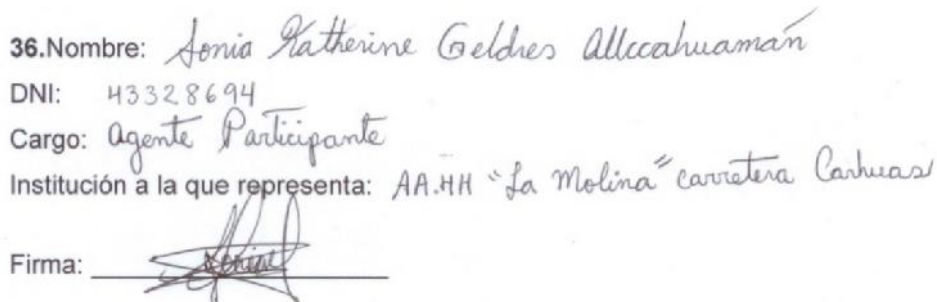 36.Nombre: Sonia Katherine Geldres Allccahuamán
DNI: 43328694
Cargo: Agente Participante
Institución a la que representa: AA.HH "La Molina" carretera Carhuas
Firma: